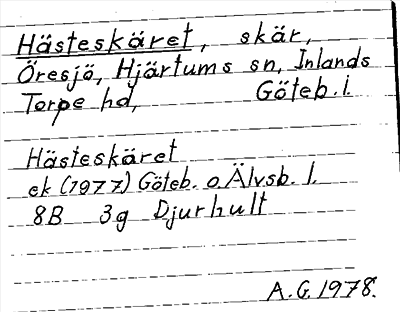 Hästeskäret, skär,
Öresjö, Hjärtums sn, Inlands
Torpe hd, Göteb. l.
Hästeskäret
ek (1977) Göteb. o. Älvsb. l.
8B 3g Djurhult
A.G. 1978.